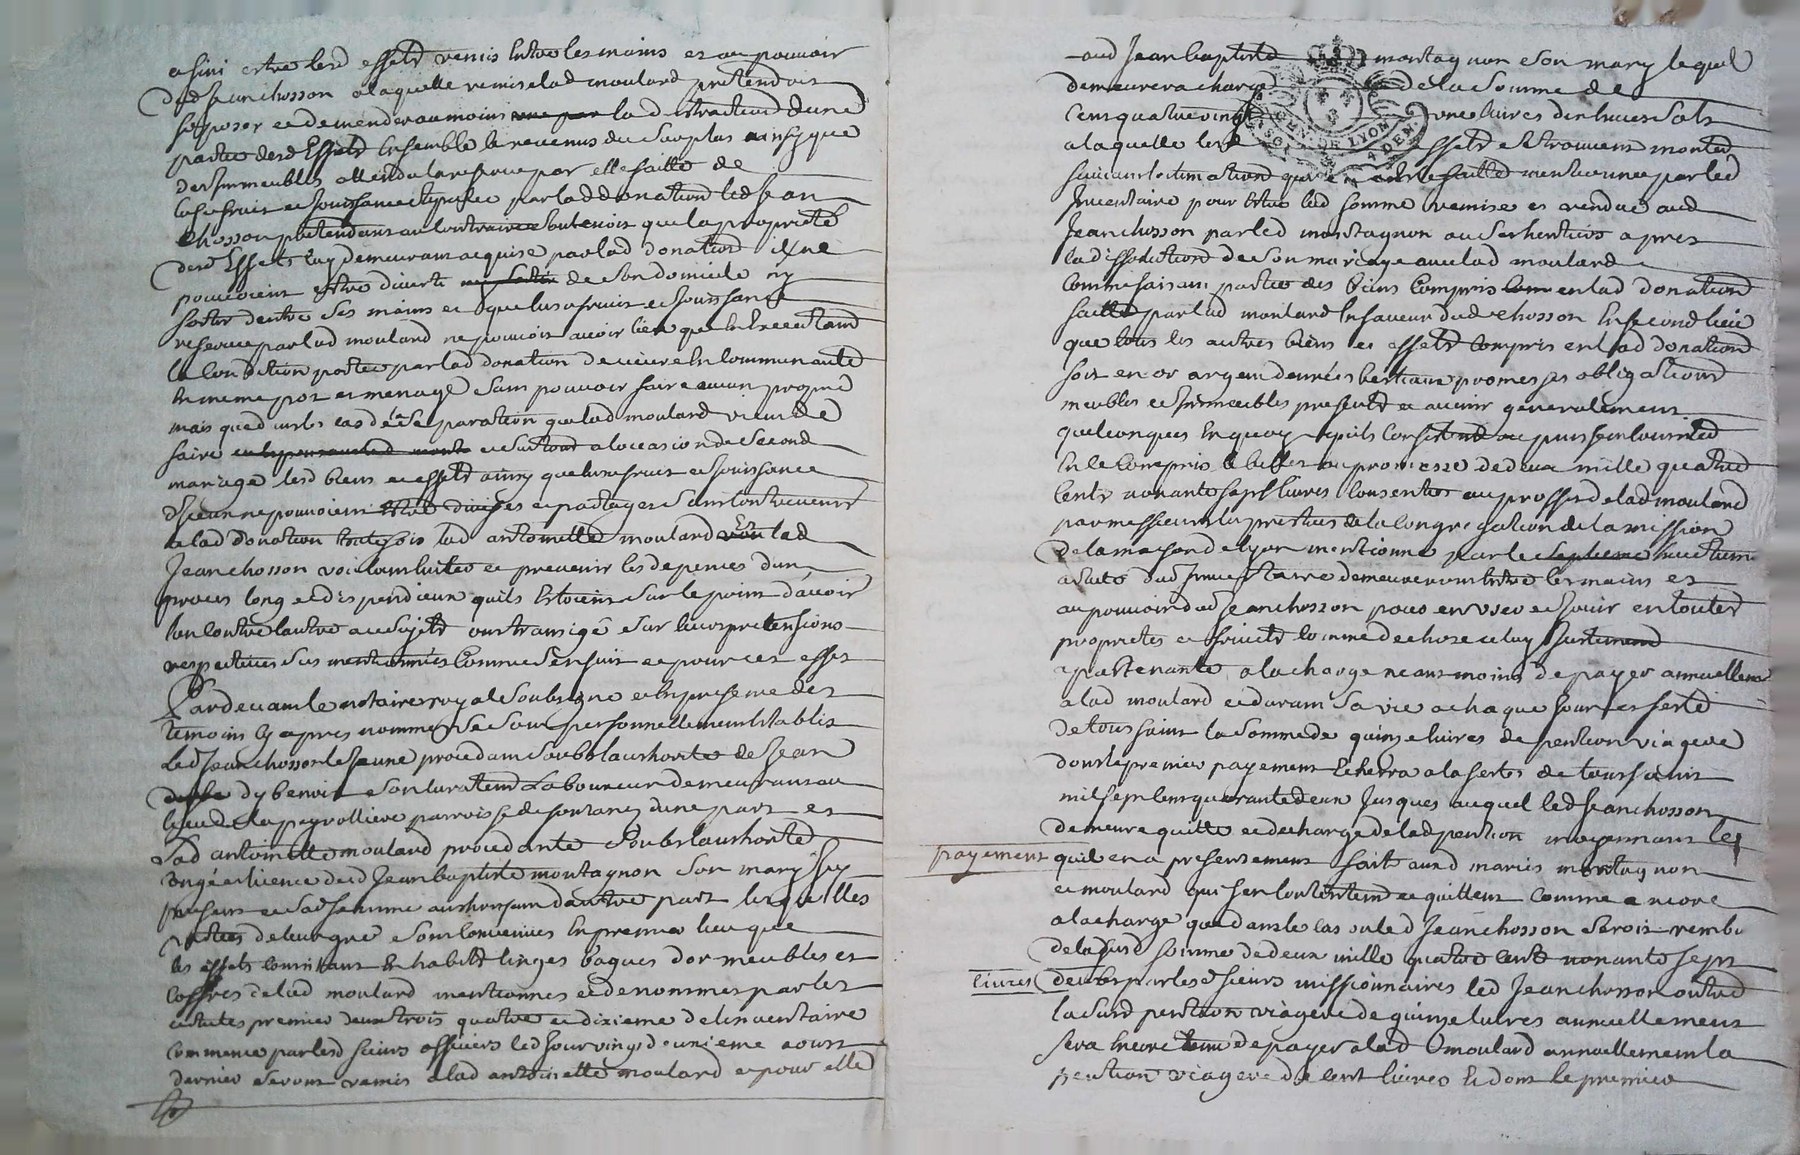 a fini estre lesd effets remis entre les mains et au pouvoir
dud Jean chosson a laquelle remise lad moulard pretendoit
soposer et demender au moins la distraction dune
partie desd Effets Ensemble le revenus du surplus ainsy que
des Jmmeubles attendu la reserve par elle faitte de
lusufruit et Jouissance par lad donation led Jean
chosson pretendant au contraire soutenoit que la proprieté
desd Effets luy demeurant acquise par lad donation
pouvoient estre diverti de son domicile ny
sortir dentre ses mains et que lusufruit et Jouissance
reservée par lad moulard ne pouvoit avoir lieu que En Executant
la condition portée par lad donation de vivre En communauté
En meme pot et menage sans pouvoir faire aucun
mais que dans les cas de la separation que lad moulard vient de
faire et surtout a locasion de second
mariage lesd biens et effets ainsy que lusufruit et Jouissance
diceux ne pouvoient estre divisés et partagés sans contrevenir
a lad donation toutefois lad antoinette moulard Et led
Jean chosson voulant Eviter et prevenir les depences dun
proces long et dispendieux quils Estoient sur le point davoir
lun contre lautre au sujet ont transigé sur leurs pretensions
respectives sus mentionnées comme sensuit et pour cet effet
Pardevant le notaire royal soubsigné et En presence des
temoins cy apres nommés se sont personnellement Establis
led Jean chosson le Jeune procedant soubs lauthorité de Jean
dybenoit son curateur Laboureur demeurant au
lieu de la peyrolliere parroisse de dune part et
Lad antoinette moulard procedante soubs lauthorité
congé et licence dud Jean baptiste montagnon son mary Jcy
present et sad femme authorisant dautre part lesquelles
parties de leur gré sont convenues En premier lieu que
les effets consistant En habits linges bagues dor meubles et
coffres de lad moulard mentionnés et denommés par les
articles premier deux trois quatre et dixieme de linventaire
commencé par lesd sieurs officiers led Jour vingt deuxieme aoust
dernier seront remis a lad antoinette moulard et pour elle
aud Jean baptiste montagnon son mary lequel
demeurera chargé de la somme de
cent quatre vingt onze livres dix huit sols
a laquelle lesd Effets se trouvent monter
suivant lestimation qui en a esté faitte mentionnée par led
Jnventaire pour Estre lad somme remise et rendue aud
Jean chosson par led montagnon ou ses heritiers apres
la dissolution de son mariage avec lad moulard
comme faisant partie des biens compris en lad donation
faitte par lad moulard En faveur dud chosson En second lieu
que tous les autres biens et effets compris en lad donation
soit en or argent denrées bestiaux promesses obligations
meubles et Jmmeubles presents et avenir generalement
quelconques En quoy quils consistent et puissent consister
En le compris le billet ou promesse de deux mille quatre
cents nonante sept livres consentie au proffit de lad moulard
par messieurs les prestres de la congregation de la mission
de la maison de lyon mentionné par le septieme
article dud Jnventaire demeureront Entre les mains et
au pouvoir dud Jean chosson pour en user et Jouir en toute
proprietés et fruits comme de chose a luy
apartenante a la charge neant moins de payer annuellement
a lad moulard et durant sa vie a chaque Jour et feste
de tous saint la somme de quinze livres de pention viagere
dont le premier payement Echerra a la feste de tous saint
mil sept cent quarante deux Jusques auquel led Jean chosson
demeure quitte et decharge de lad pention moyennant le
payement quil en a presentement fait aux d mariés montagnon
et moulard qui sen contentent et quittent comme encore
a la charge que dans le cas ou led Jean chosson seroit rembo
de la susd somme de deux mille quatre cent nonante sept
livres deues par lesd sieurs missionnaires led Jean chosson outre
la susd pention viagere de quinze livres annuellement
sera Encore tenu de payer a lad moulard annuellement la
pention viagere de cent livres Et dont le premier
GEN DE LYON
4 DEN